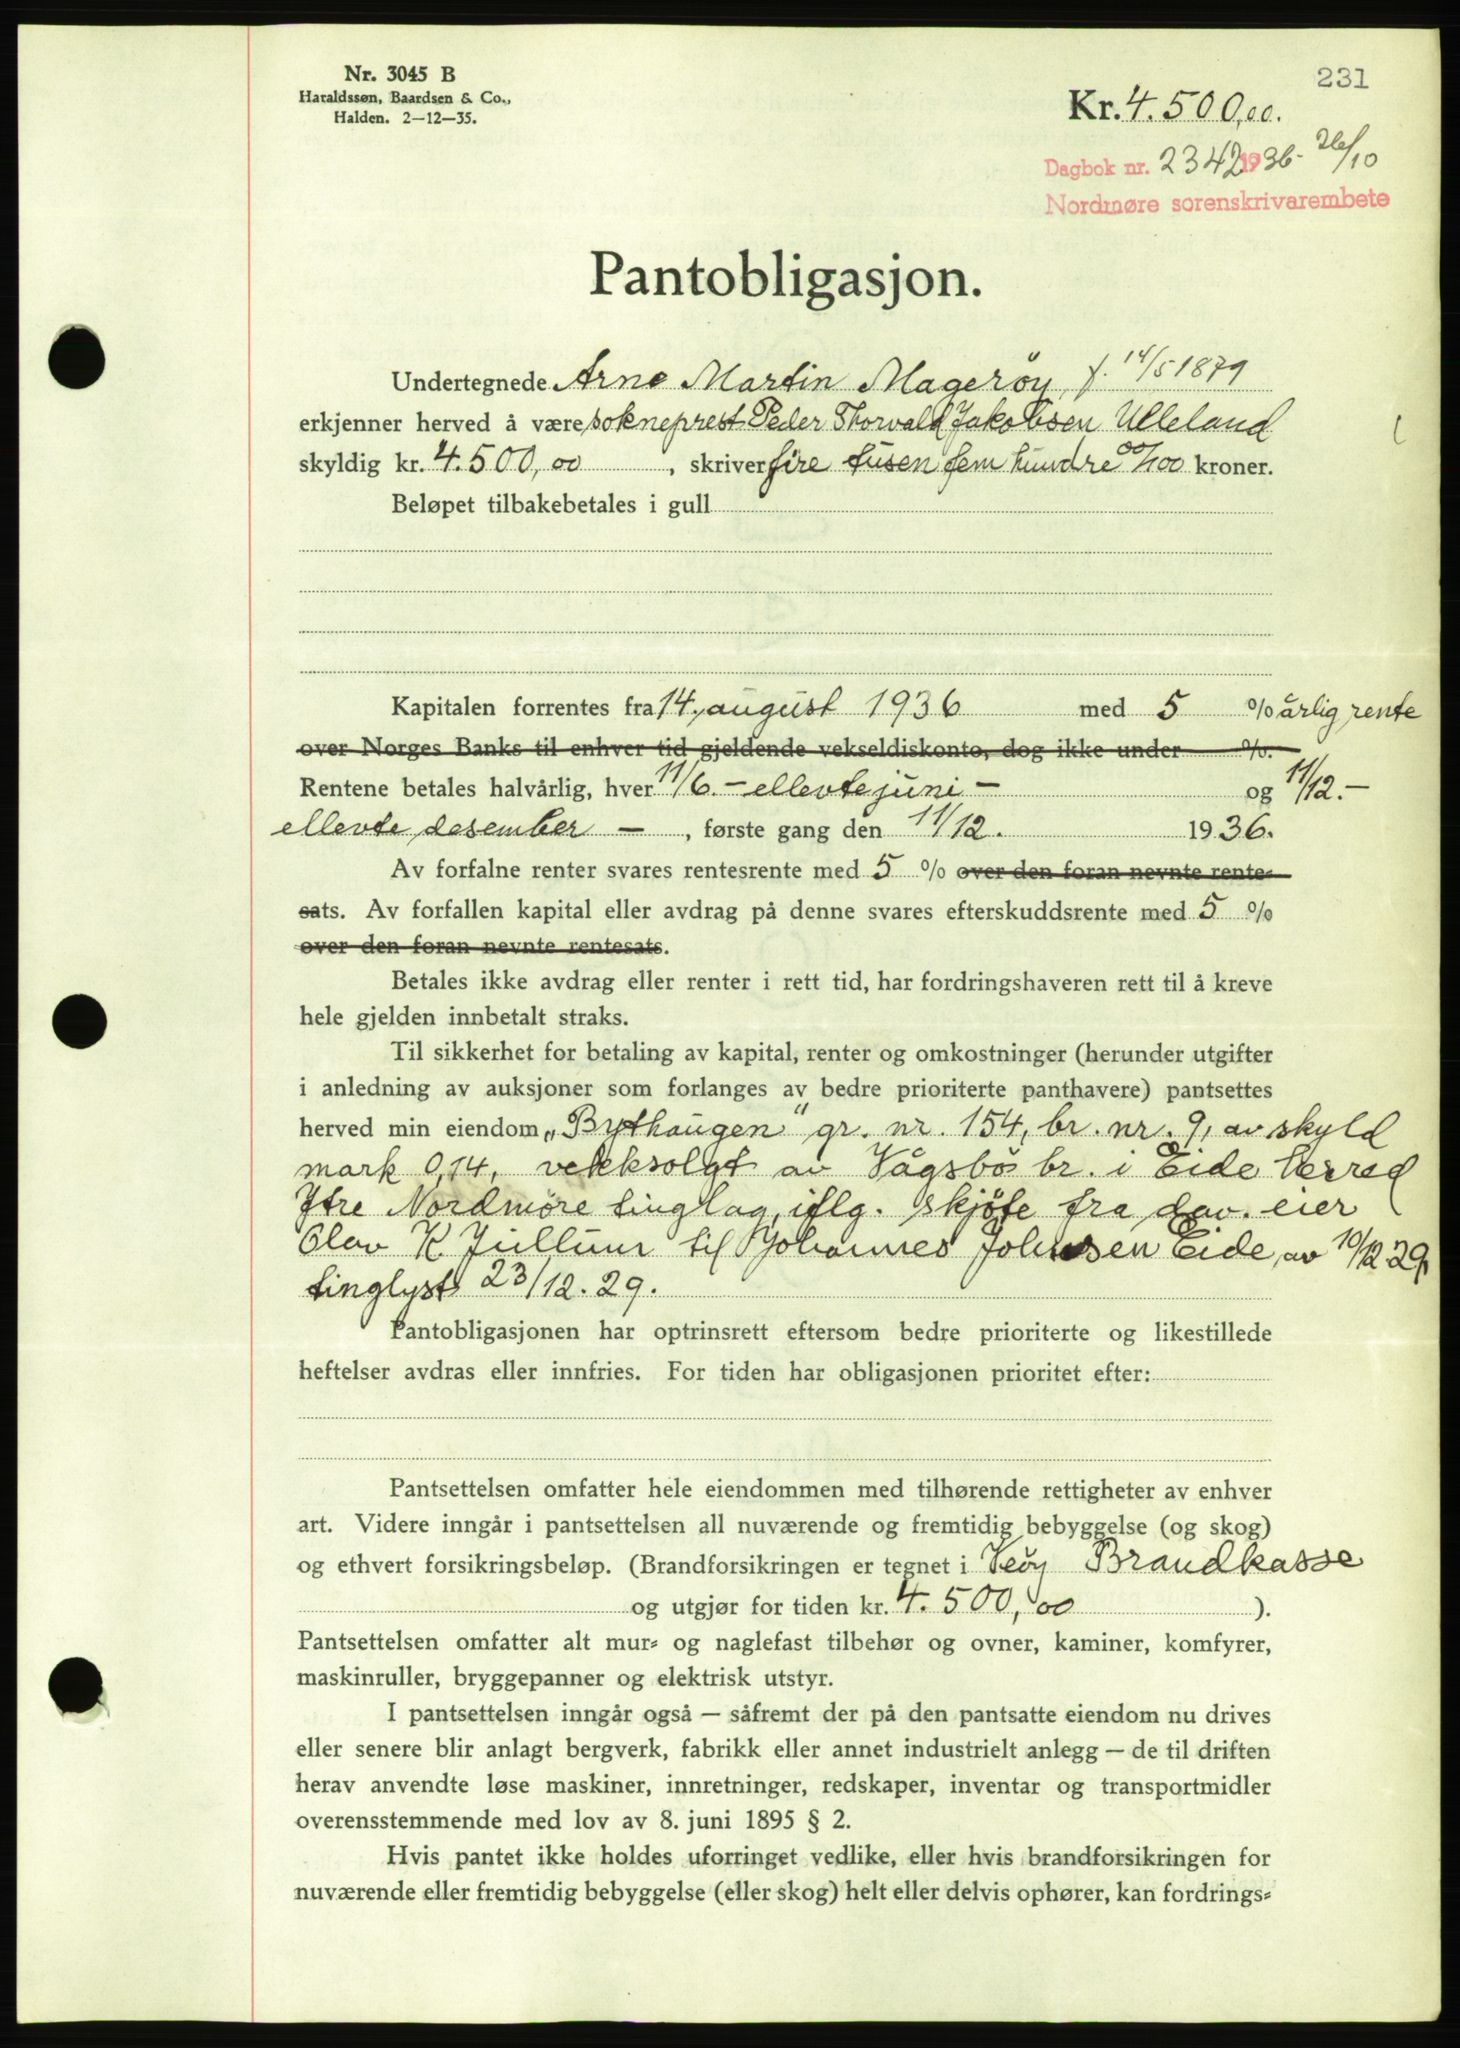 Nr. 3045 B
Haraldssøn, Baardsen & Co.,
Halden. 2—12—35.
231
Kr. 4.500,00.
Dagbok nr. 2342 1936 - 26/10
Nordmøre sorenskrivarembete
Pantobligasjon.
Undertegnede Arne Martin Magerøy, f. 14/5 1879
erkjenner herved å være sokneprest Peder Thorvald Jakobsen Ulleland
skyldig kr. 4.500,00 , skriver fire tusen fem hundre 00/100 kroner.
Beløpet tilbakebetales i gull
Kapitalen forrentes fra 14. august 1936 med 5 % årlig rente
over Norges Banks til enhver tid gjeldende vekseldiskonto, dog ikke under %.
Rentene betales halvårlig, hver 11/6. - ellevte juni - og 11/12. -
ellevte desember - , første gang den 11/12. 1936.
Av forfalne renter svares rentesrente med 5 % over den foran nevnte rente-
sats. Av forfallen kapital eller avdrag på denne svares efterskuddsrente med 5 %
over den foran nevnte rentesats.
Betales ikke avdrag eller renter i rett tid, har fordringshaveren rett til å kreve
hele gjelden innbetalt straks.
Til sikkerhet for betaling av kapital, renter og omkostninger (herunder utgifter
i anledning av auksjoner som forlanges av bedre prioriterte panthavere) pantsettes
herved min eiendom „Bythaugen" gr. nr. 154, br. nr. 9, av skyld
mark 0,14, vekksolgt av Vågsbø br. i Eide herred
Ytre Nordmøre tinglag, iflg. skjøte fra dav. eier
Olav K Jullum til Johannes Johnsen Eide, av 10/12.29,
tinglyst 23/12.29.
Pantobligasjonen har optrinsrett eftersom bedre prioriterte og likestillede
heftelser avdras eller innfries. For tiden har obligasjonen prioritet efter:
Pantsettelsen omfatter hele eiendommen med tilhørende rettigheter av enhver
art. Videre inngår i pantsettelsen all nuværende og fremtidig bebyggelse (og skog)
og ethvert forsikringsbeløp. (Brandforsikringen er tegnet i Veøy Brandkasse
og utgjør for tiden kr. 4.500,00 ).
Pantsettelsen omfatter alt mur- og naglefast tilbehør og ovner, kaminer, komfyrer,
maskinruller, bryggepanner og elektrisk utstyr.
I pantsettelsen inngår også — såfremt der på den pantsatte eiendom nu drives
eller senere blir anlagt bergverk, fabrikk eller annet industrielt anlegg — de til driften
herav anvendte løse maskiner, innretninger, redskaper, inventar og transportmidler
overensstemmende med lov av 8. juni 1895 § 2.
Hvis pantet ikke holdes uforringet vedlike, eller hvis brandforsikringen for
nuværende eller fremtidig bebyggelse (eller skog) helt eller delvis ophører, kan fordrings-